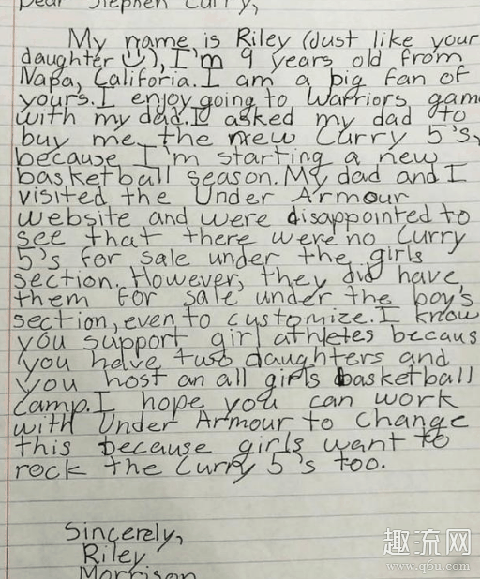 Dear Stephen Curry,
My name is Riley (Just like your
daughter ☺), I'm 9 years old from
Napa, Califoria. I am a big fan of
yours. I enjoy going to Warriors game
with my dad. I asked my dad to
buy me the new Curry 5's,
because I'm starting a new
basketball season. My dad and I
visited the Under Armour
website and were disappointed to
see that there were no Curry
5's for sale under the girls
section. However, they did have
them for sale under the boy's
section, even to customize. I know
you support girl athletes becaus
you have two daughters and
you host an all girls basketball
camp. I hope you can work
with Under Armour to change
this because girls want to
rock the Curry 5's too.
Sincerely,
Riley
Morrison
趣流网
www.qou.com